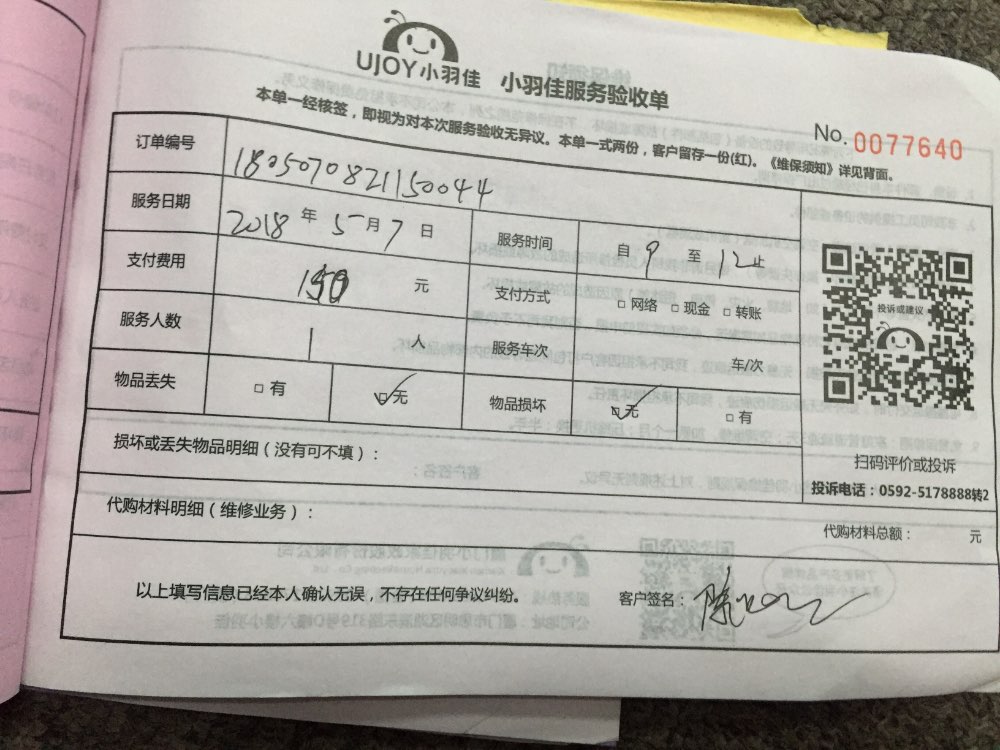 UJOY小羽佳 小羽佳服务验收单
本单一经核签，即视为对本次服务验收无异议。本单一式两份，客户留存一份(红)。《维保须知》详见背面。
No. 0077640
订单编号 1805070821150044
服务日期 2018年5月7日 服务时间 自9至12止
支付费用 150元 支付方式 □网络 □现金 □转账
服务人数 1人 服务车次 车/次
物品丢失 □有 ☑无 物品损坏 ☑无 □有
投诉或建议
扫码评价或投诉
投诉电话：0592-5178888转2
损坏或丢失物品明细（没有可不填）：
代购材料明细（维修业务）：
代购材料总额： 元
以上填写信息已经本人确认无误，不存在任何争议纠纷。 客户签名：